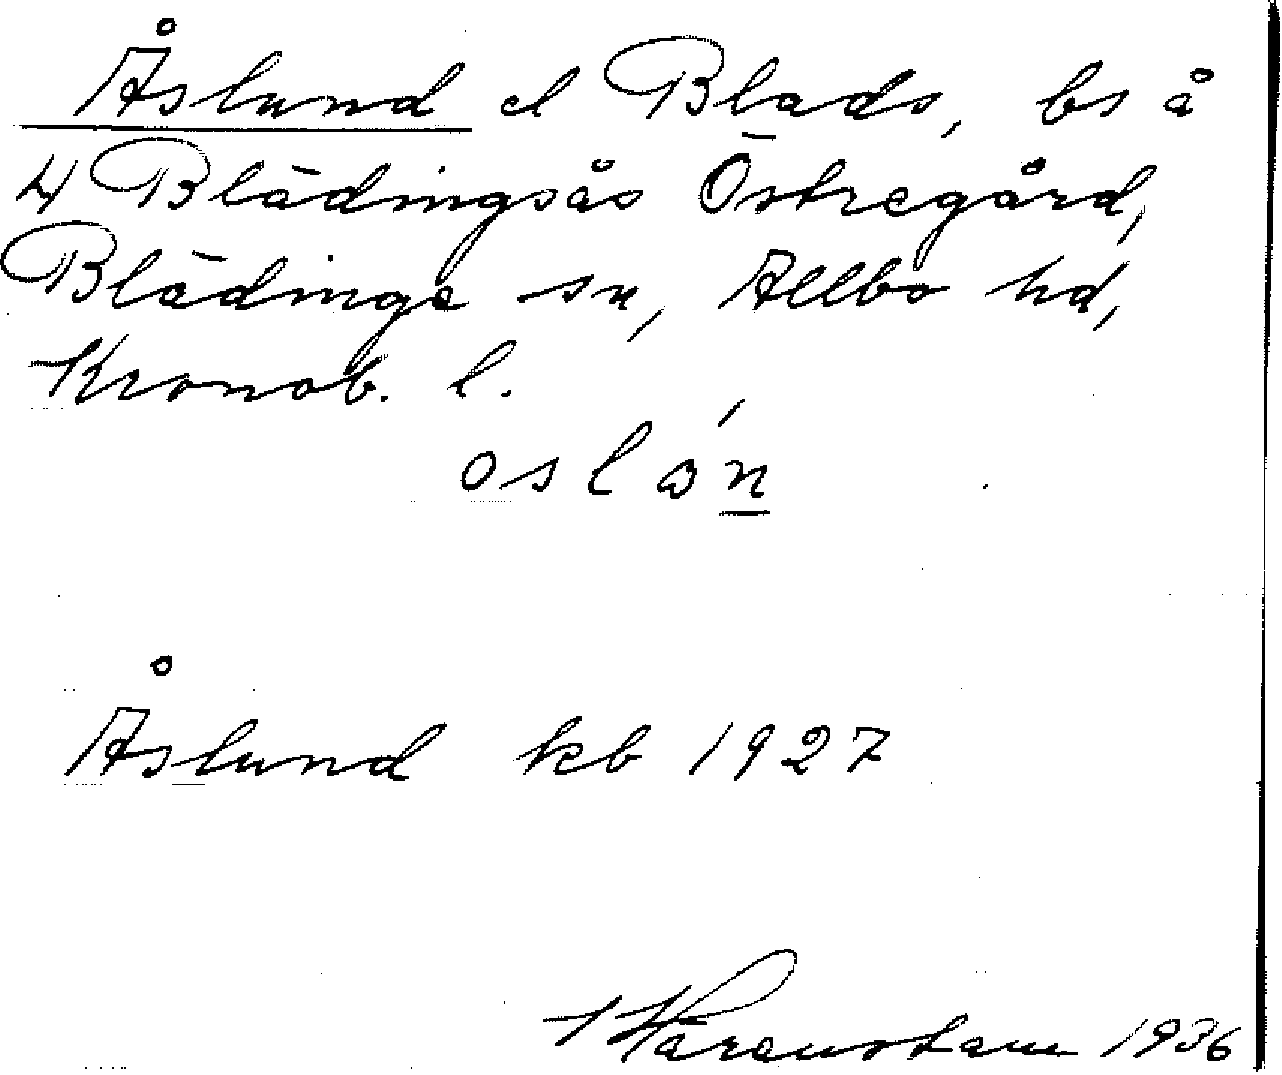 Åslund el Blads, bs å
4 Blädingsås Östregård,
Blädinge sn, Allbo hd,
Kronob. l.
oslán
Åslund kb 1927
Härenstam 1936